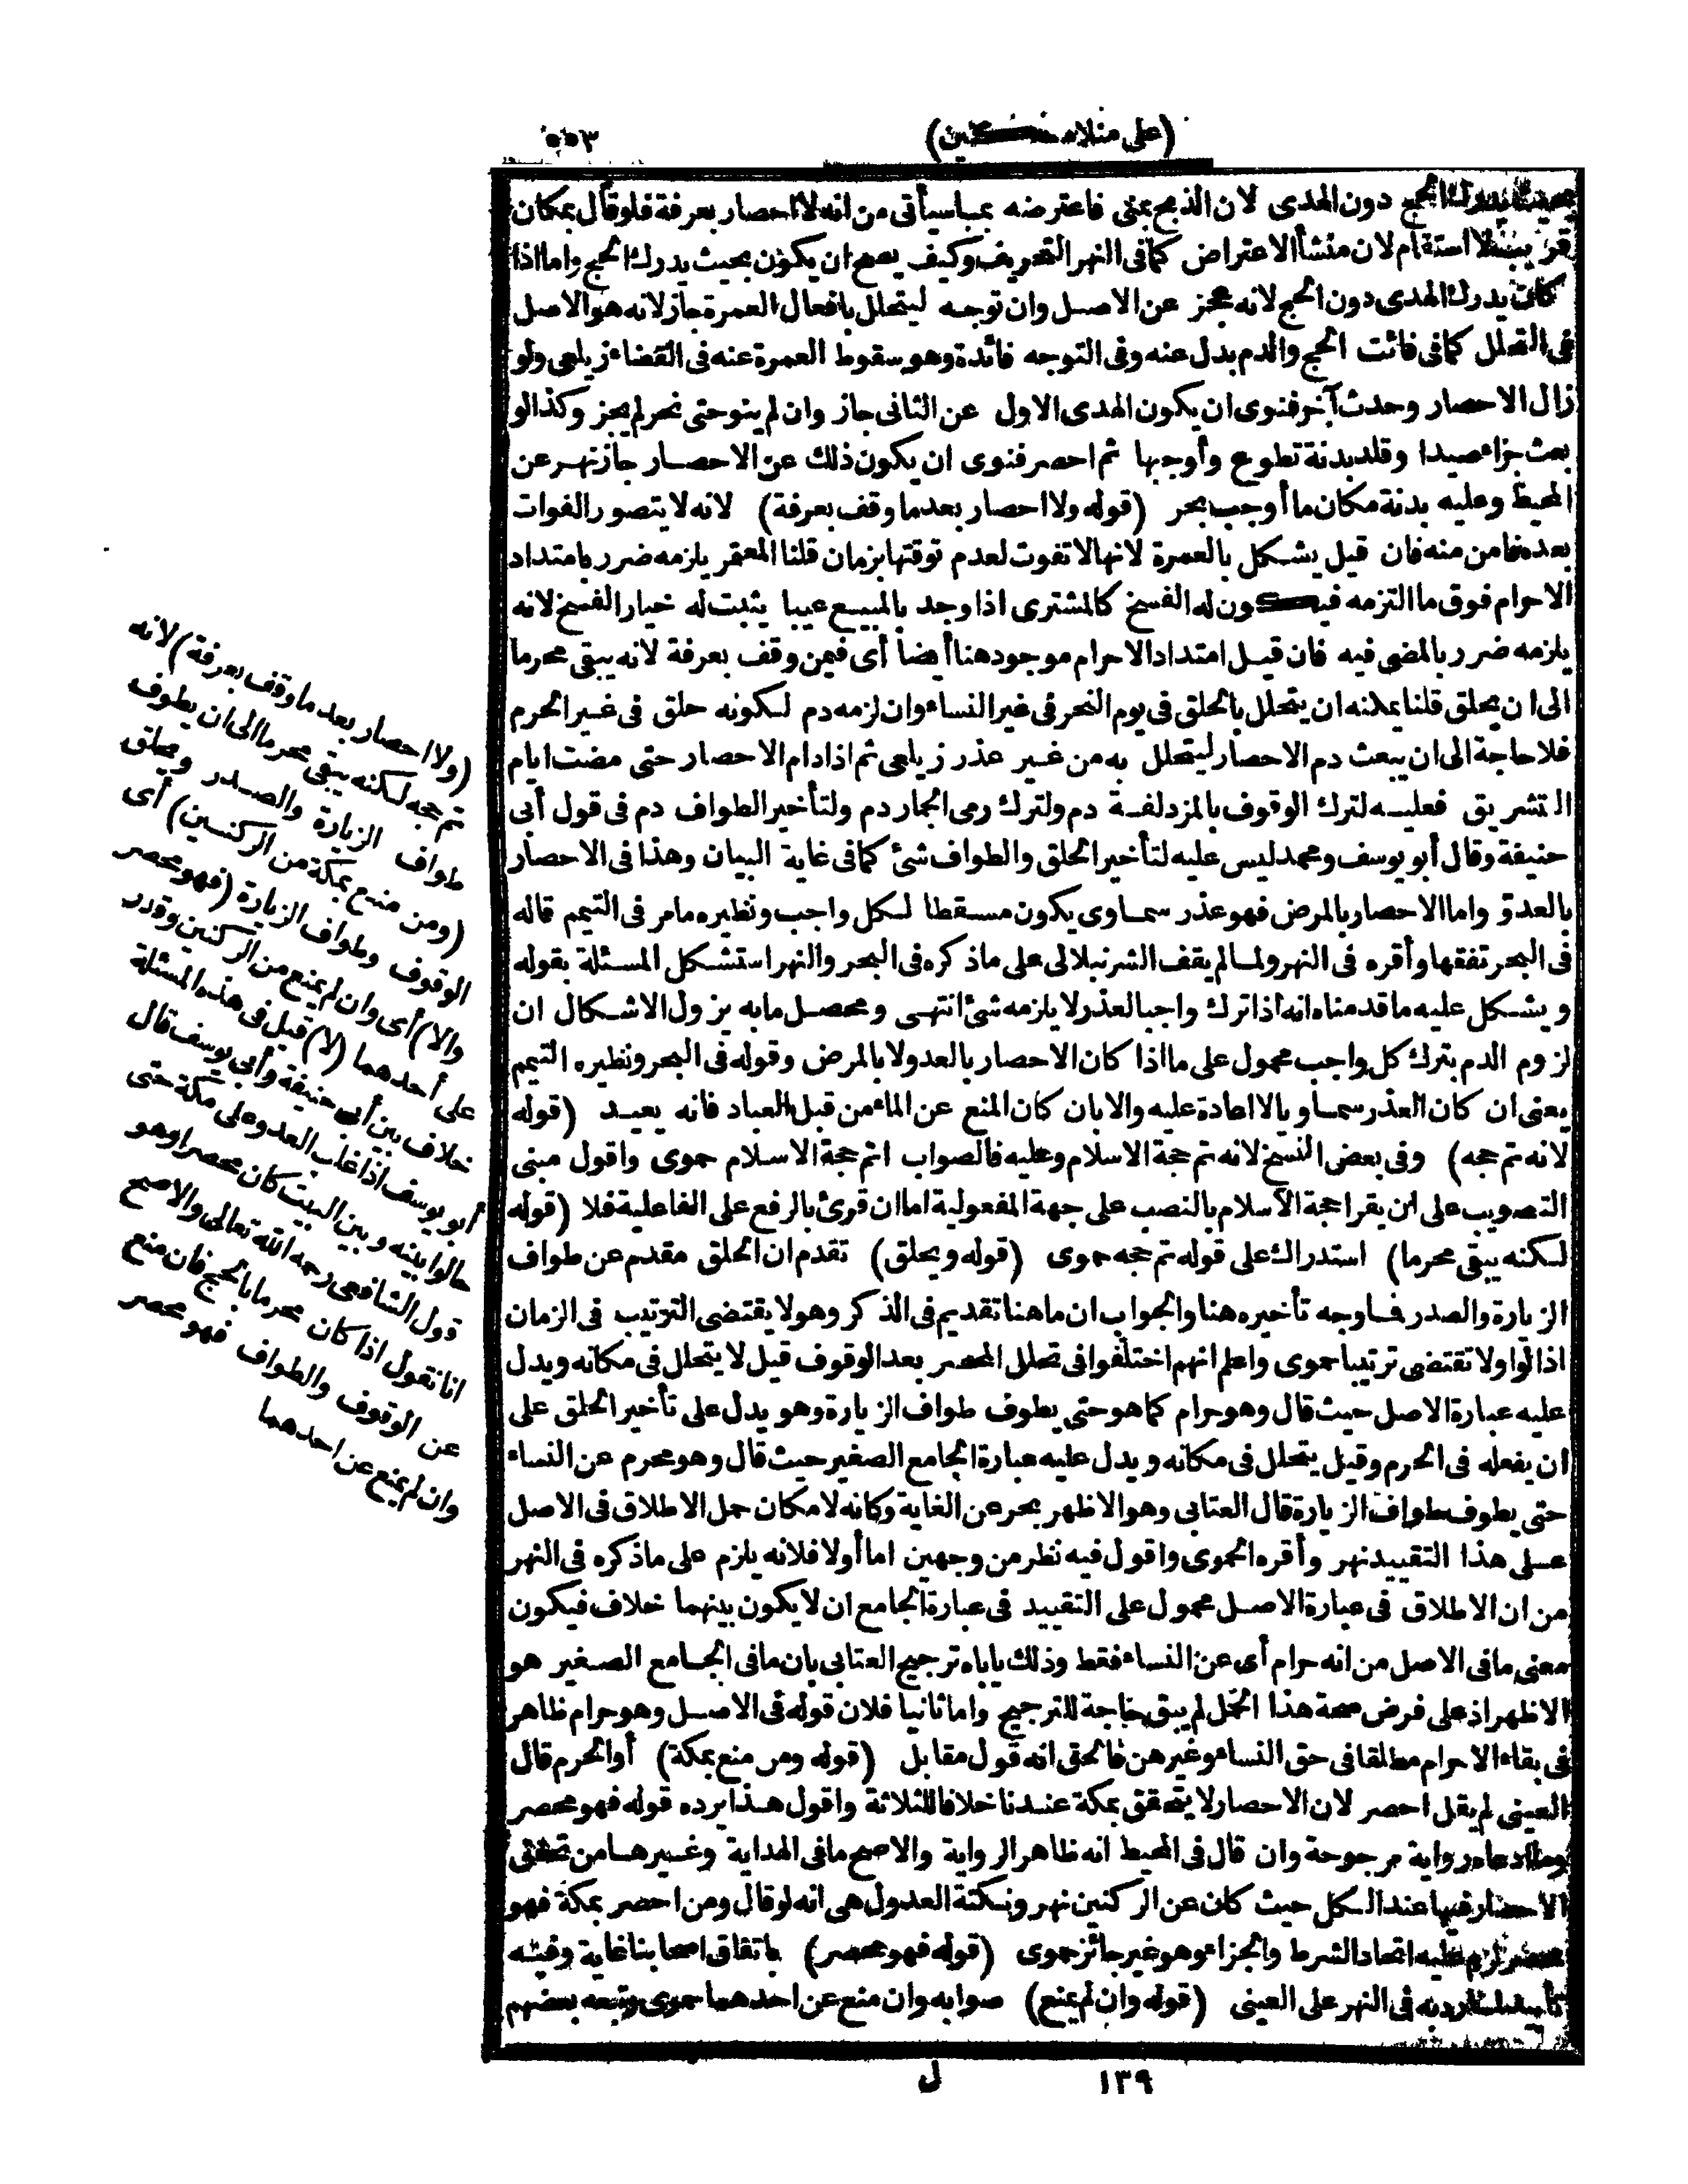 (على منلا مسكين)
٥٥٣
دون الهدى لان الذبح بمنى فاعترضه بماسيأتى من انه لا احصار بعرفة فلو قال بمكان
لاستقام لان منشأ الاعتراض كما فى النهر التعريف وكيف يصح ان يكون بحيث يدرك الحج واما اذا
كان يدرك الهدى دون الحج لانه عجز عن الاصل وان توجه ليتحلل بافعال العمرة جاز لانه هو الاصل
فى التحلل كما فى فائت الحج والدم بدل عنه وفى التوجه فائدة وهو سقوط العمرة عنه فى القضاء زيلعى ولو
زال الاحصار وحدث آخر فنوى ان يكون الهدى الاول عن الثانى جاز وان لم ينو حتى نحر لم يجز وكذا لو
بعث جزاء صيدا وقلد بدنة تطوع وأوجبها ثم احصر فنوى ان يكون ذلك عن الاحصار جاز نهر عن
المحيط وعليه بدنة مكان ما أوجب بحر (قوله ولا احصار بعدما وقف بعرفة) لانه لا يتصور الفوات
بعده فامن منه فان قيل يشكل بالعمرة لانها لا تفوت لعدم توقتها بزمان قلنا المعتمر يلزمه ضرر بامتداد
الاحرام فوق ما التزمه فيكون له الفسخ كالمشترى اذا وجد بالمبيع عيبا يثبت له خيار الفسخ لانه
يلزمه ضرر بالمضى فيه فان قيل امتداد الاحرام موجود هنا أيضا أى فيمن وقف بعرفة لانه يبقى محرما
الى ان يحلق قلنا يمكنه ان يتحلل بالحلق فى يوم النحر فى غير النساء وان لزمه دم لكونه حلق فى غير الحرم
فلا حاجة الى ان يبعث دم الاحصار ليتحلل به من غير عذر زيلعى ثم اذا دام الاحصار حتى مضت ايام
التشريق فعليه لترك الوقوف بالمزدلفة دم ولترك رمى الجمار دم ولتأخير الطواف دم فى قول أبى
حنيفة وقال أبو يوسف ومحمد ليس عليه لتأخير الحلق والطواف شئ كما فى غاية البيان وهذا فى الاحصار
بالعدو واما الاحصار بالمرض فهو عذر سماوى يكون مسقطا لكل واجب ونظيره ما مر فى التيمم قاله
فى البحر تفقها وأقره فى النهر ولما لم يقف الشرنبلالى على ما ذكره فى البحر والنهر استشكل المسئلة بقوله
ويشكل عليه ما قدمناه انه اذا ترك واجبا لعذر لا يلزمه شئ انتهى ومحصل ما به يزول الاشكال ان
لزوم الدم بترك كل واجب محمول على ما اذا كان الاحصار بالعدو لا بالمرض وقوله فى البحر ونظيره التيمم
يعنى ان كان العذر سماويا لا اعادة عليه والا بان كان المنع عن الماء من قبل العباد فانه يعيد (قوله
لانه تم حجه) وفى بعض النسخ لانه تم حجة الاسلام وعليه فالصواب اتم حجة الاسلام حموى واقول مبنى
التصويب على ان يقرا حجة الاسلام بالنصب على جهة المفعولية اما ان قرئ بالرفع على الفاعلية فلا (قوله
لكنه يبقى محرما) استدراك على قوله تم حجه حموى (قوله ويحلق) تقدم ان الحلق مقدم عن طواف
الزيارة والصدر فما وجه تأخيره هنا والجواب ان ما هنا تقديم فى الذكر وهو لا يقتضى الترتيب فى الزمان
اذا لواو لا تقتضى ترتيبا حموى واعلم انهم اختلفوا فى تحلل المحصر بعد الوقوف قيل لا يتحلل فى مكانه ويدل
عليه عبارة الاصل حيث قال وهو حرام كما هو حتى يطوف طواف الزيارة وهو يدل على تأخير الحلق على
ان يفعله فى الحرم وقيل يتحلل فى مكانه ويدل عليه عبارة الجامع الصغير حيث قال وهو محرم عن النساء
حتى يطوف طواف الزيارة قال العتابى وهو الاظهر بحر عن الغاية وكانه لامكان حمل الاطلاق فى الاصل
على هذا التقييد نهر وأقره الحموى واقول فيه نظر من وجهين اما أولا فلانه يلزم على ما ذكره فى النهر
من ان الاطلاق فى عبارة الاصل محمول على التقييد فى عبارة الجامع ان لا يكون بينهما خلاف فيكون
معنى ما فى الاصل من انه حرام أى عن النساء فقط وذلك ياباه ترجيح العتابى بان ما فى الجامع الصغير هو
الاظهر اذ على فرض صحة هذا الحمل لم يبق حاجة للترجيح واما ثانيا فلان قوله فى الاصل وهو حرام ظاهر
فى بقاء الاحرام مطلقا فى حق النساء وغيرهن فالحق انه قول مقابل (قوله ومن منع بمكة) أو الحرم قال
العينى لم يقل احصر لان الاحصار لا يتحقق بمكة عندنا خلافا للثلاثة واقول هذا يرده قوله فهو محصر
وما ادعاه رواية مرجوحة وان قال فى المحيط انه ظاهر الرواية والاصح ما فى الهداية وغيرها من تحقق
الاحصار فيها عند الكل حيث كان عن الركنين نهر ونكتة العدول هى انه لو قال ومن احصر بمكة فهو
محصر لزم عليه اتحاد الشرط والجزاء وهو غير جائز حموى (قوله فهو محصر) باتفاق اصحابنا غاية وفيه
فى النهر على العينى (قوله وان لم يمنع) صوابه وان منع عن احدهما حموى وتبعه بعضهم
(ولا احصار بعد ما وقف بعرفة) لانه
تم حجه لكنه يبقى محرما الى ان يطوف
طواف الزيارة والصدر ويحلق
(ومن منع بمكة من الركنين) أى
الوقوف وطواف الزيارة (فهو محصر
والا) أى وان لم يمنع من الركنين وقدر
على أحدهما (لا) قيل فى هذه المسئلة
خلاف بين أبى حنيفة وأبى يوسف قال
أبو يوسف اذا غلب العدو على مكة حتى
حالوا بينه وبين البيت كان محصرا وهو
قول الشافعى رحمه الله تعالى والاصح
انا نقول اذا كان محرما بالحج فان منع
عن الوقوف والطواف فهو محصر
وان لم يمنع عن احدهما
١٣٩
ل